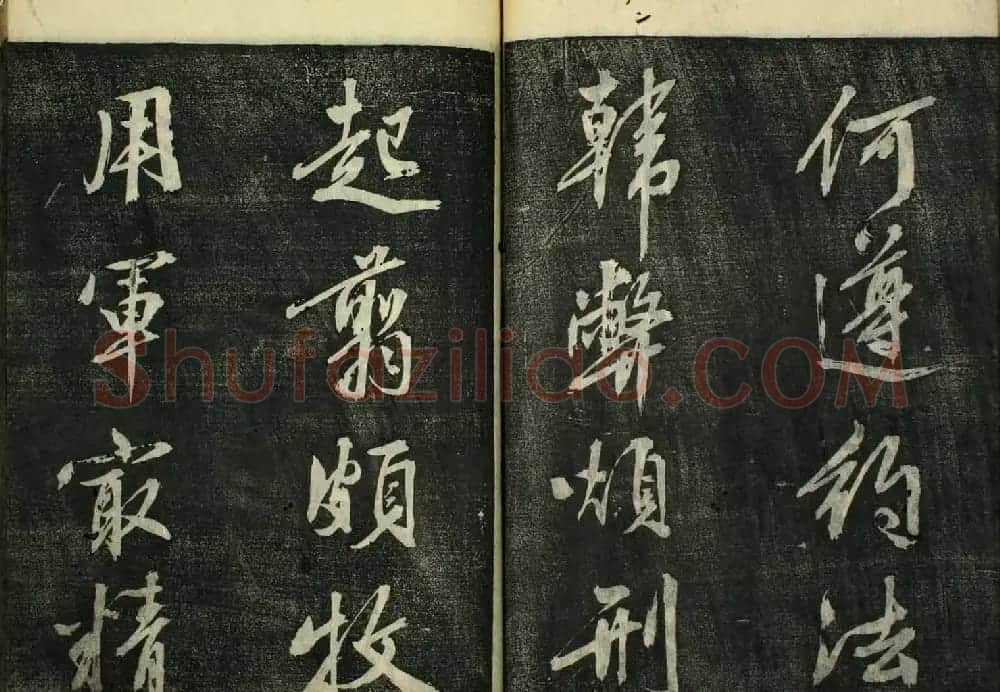 何遵約法
韓弊煩刑
起翦頗牧
用軍最精
Shufazilido.COM